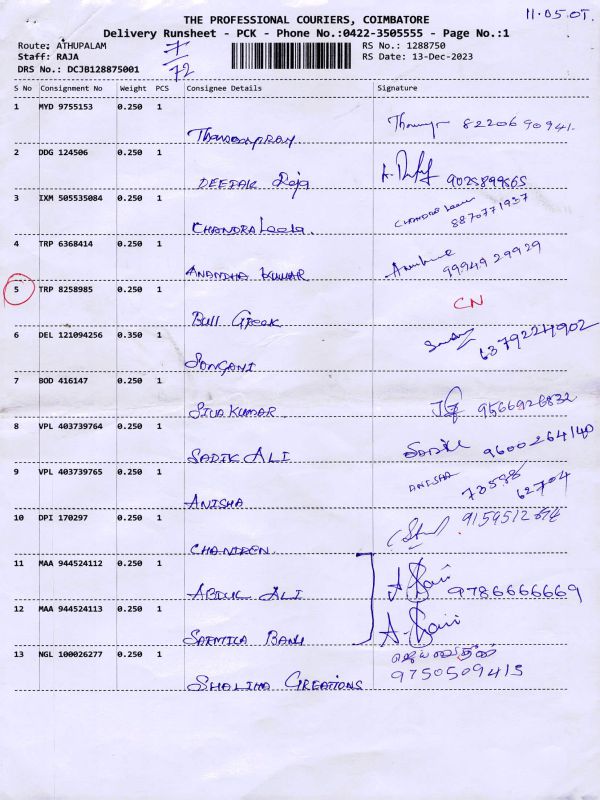 11.05.07.
THE PROFESSIONAL COURIERS, COIMBATORE
Delivery Runsheet - PCK - Phone No.:0422-3505555 - Page No.:1
Route: ATHUPALAM 7 RS No.: 1288750
Staff: RAJA 72 RS Date: 13-Dec-2023
DRS No.: DCJB128875001
S No Consignment No Weight PCS Consignee Details Signature
1 MYD 9755153 0.250 1
8220690941.
2 DDG 124506 0.250 1
DEEPAK Raja
3 IXM 505535084 0.250 1
CHANDRA Leela. 8870771937
4 TRP 6368414 0.250 1
ANANDHA KUMAR 9994929929
5 TRP 8258985 0.250 1
CN
BULL Greek
6 DEL 121094256 0.350 1
6379224902
SONGANI
7 BOD 416147 0.250 1
SIVA KUMAR 9566926832
8 VPL 403739764 0.250 1
SADIK ALI 9600264140
9 VPL 403739765 0.250 1
ANISHA 70598 62704
10 DPI 170297 0.250 1
CHANDREN
11 MAA 944524112 0.250 1
ABDUL ALI 9786666669
12 MAA 944524113 0.250 1
SARMILA BANU
13 NGL 100026277 0.250 1
9750509415
SHALIMA CREATIONS